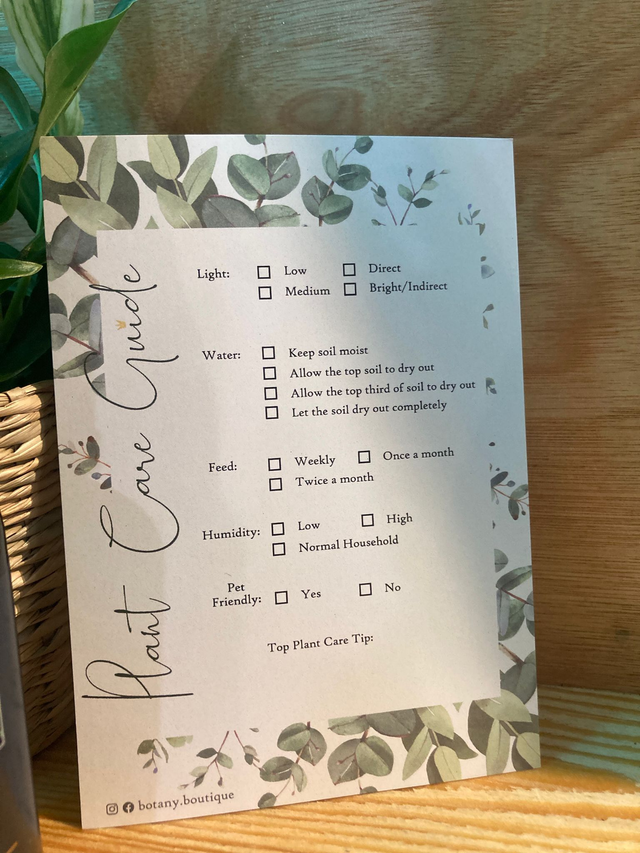 Plant Care Guide
Light: Low Direct
Medium Bright/Indirect
Water: Keep soil moist
Allow the top soil to dry out
Allow the top third of soil to dry out
Let the soil dry out completely
Feed: Weekly Once a month
Twice a month
Humidity: Low High
Normal Household
Pet
Friendly: Yes No
Top Plant Care Tip:
botany.boutique